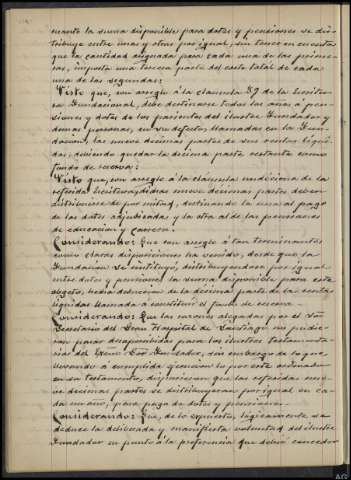 cuanto la suma disponible para dotes y pensiones se dis-
tribuye entre unas y otras por igual, sin tener en cuenta
que la cantidad asignada para cada una de las prime-
ras, importa una tercera parte del coste total de cada
una de las segundas:
Visto que, con arreglo á la clausula 37 de la Escritura
Fundacional, debe destinarse todos los años á pen-
siones y dotes de los parientes del ilustre Fundador y
demas personas, en su defecto, llamadas en la Fun-
dacion, las nueve decimas partes de sus rentas liqui-
das, debiendo quedar la decima parte restante como
fondo de reserva:
Visto que, con arreglo á la clausula undécima de la
referida Escritura, dichas nueve decimas partes deben
distribuirse por mitad, destinando la una al pago
de las dotes adjudicadas y la otra al de las pensiones
de educacion y carrera.
Considerando: Que con arreglo á tan terminantes
como claras disposiciones ha venido, desde que la
Fundacion se instituyó, distribuyendose por igual
entre dotes y pensiones la suma disponible para este
objeto, hecha deduccion de la decima parte de las rentas
liquidas llamada á constituir el fondo de reserva
Considerando: Que las razones alegadas por el Sr.
Secretario del Gran Hospital de Santiago no pudie-
ron pasar desapercibidas para los ilustres testamenta-
rios del Excmo Sor Fundador, sin embargo de lo que
llevando á cumplida ejecucion lo por este ordenado
en su testamento, dispusieron que las referidas nue-
ve decimas partes se distribuyeran por igual en ca-
da un año, para pago de dotes y pensiones.
Considerando: Que, de lo expuesto, lógicamente se
deduce la deliberada y manifiesta voluntad del ilustre
Fundador en punto á la preferencia que debia conceder